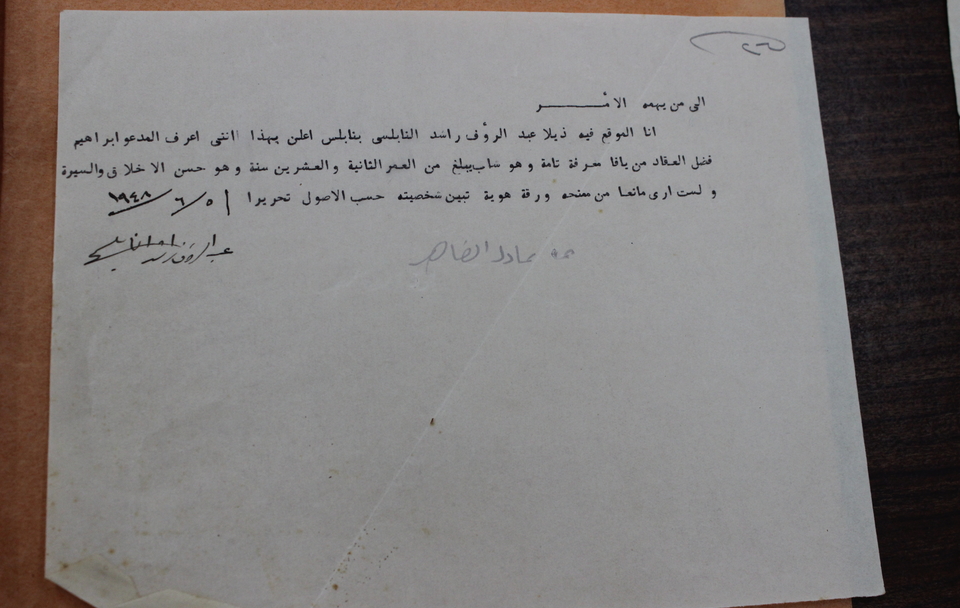 ٢٦٥
الى من يهمه الأمـــــــر
انا الموقع فيه ذيلا عبد الرؤف راشد النابلسي بنابلس اعلن بهذا انني اعرف المدعو ابراهيم
فضل العقاد من يافا معرفة تامة و هو شاب يبلغ من العمر الثانية والعشرين سنة و هو حسن الاخلاق والسيرة
و لست ارى مانعا من منحه ورقة هوية تبين شخصيته حسب الاصول تحريرا ٥ / ٦ / ١٩٤٨
عبد الرؤف راشد النابلسي
عادل